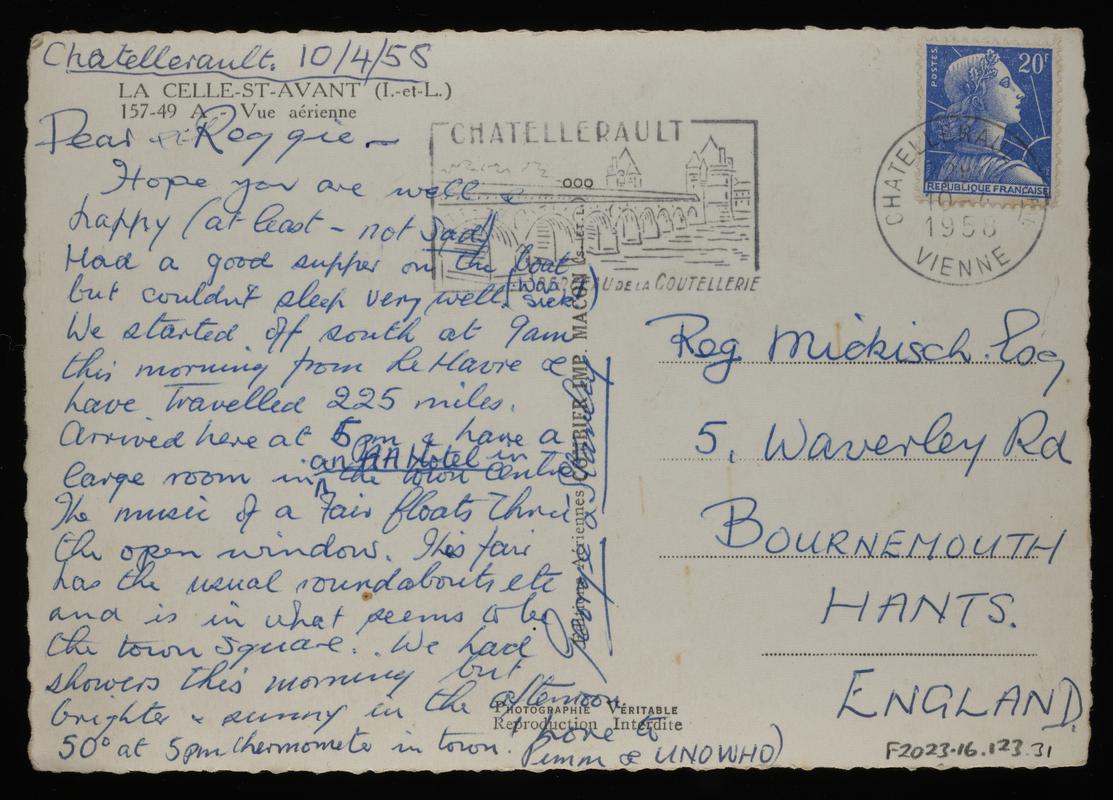 Chatellerault. 10/4/58
LA CELLE-ST-AVANT (I.-et-L.)
157-49 A - Vue aérienne
Dear Reggie -
Hope you are well &
happy (at least - not sad)
Had a good supper on the boat
but couldn't sleep very well. (was sick)
We started off south at 9am
this morning from Le Havre &
have travelled 225 miles.
Arrived here at 5pm & have a
large room in an AA Hotel in the town centre
The music of a Fair floats thru
the open window. This fair
has the usual roundabouts etc
and is in what seems to be
the town square. We had
showers this morning but
brighter & sunny in the afternoon
50° at 5pm thermometer in town.
love to
Pimm & UNOWHO)
George & Stanley
Aériennes COMBIER IMP. MACON (S.-ET-L.)
PHOTOGRAPHIE VÉRITABLE
Reproduction Interdite
CHATELLERAULT
DE LA COUTELLERIE
POSTES
20F
REPUBLIQUE FRANÇAISE
CHATELLERAULT
10
1958
VIENNE
Reg Mickisch. Esq
5, Waverley Rd
BOURNEMOUTH
HANTS.
ENGLAND.
F2023.16.123.31